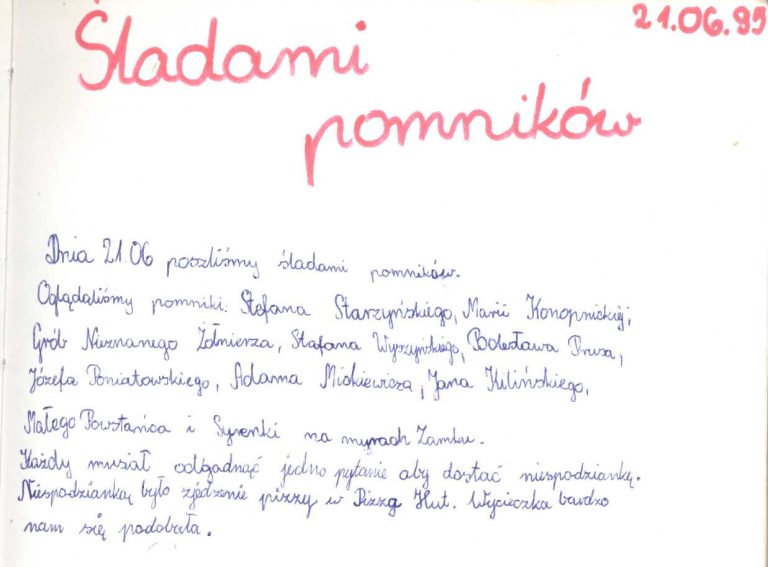 21.06.95
Śladami
pomników
Dnia 21.06 poszliśmy śladami pomników.
Oglądaliśmy pomniki: Stefana Starzyńskiego, Marii Konopnickiej,
Grób Nieznanego Żołnierza, Stafana Wyszyńskiego, Bolesława Prusa,
Józefa Poniatowskiego, Adama Mickiewicza, Jana Kilińskiego,
Małego Powstańca i Syrenki na murach Zamku.
Każdy musiał odgadnąć jedno pytanie aby dostać niespodziankę.
Niespodzianką było zjedzenie pizzy w Pizzą Hut. Wycieczka bardzo
nam się podobała.